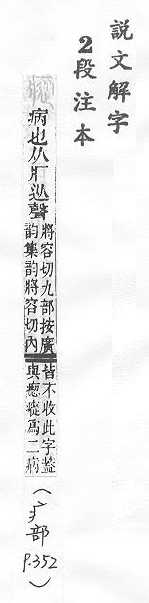 說文解字
2段注本
病也从疒從聲
將容切九部按廣
韵集韵將容切內
皆不收此字葢
與瘛瘲爲二病
(疒部 P.352)